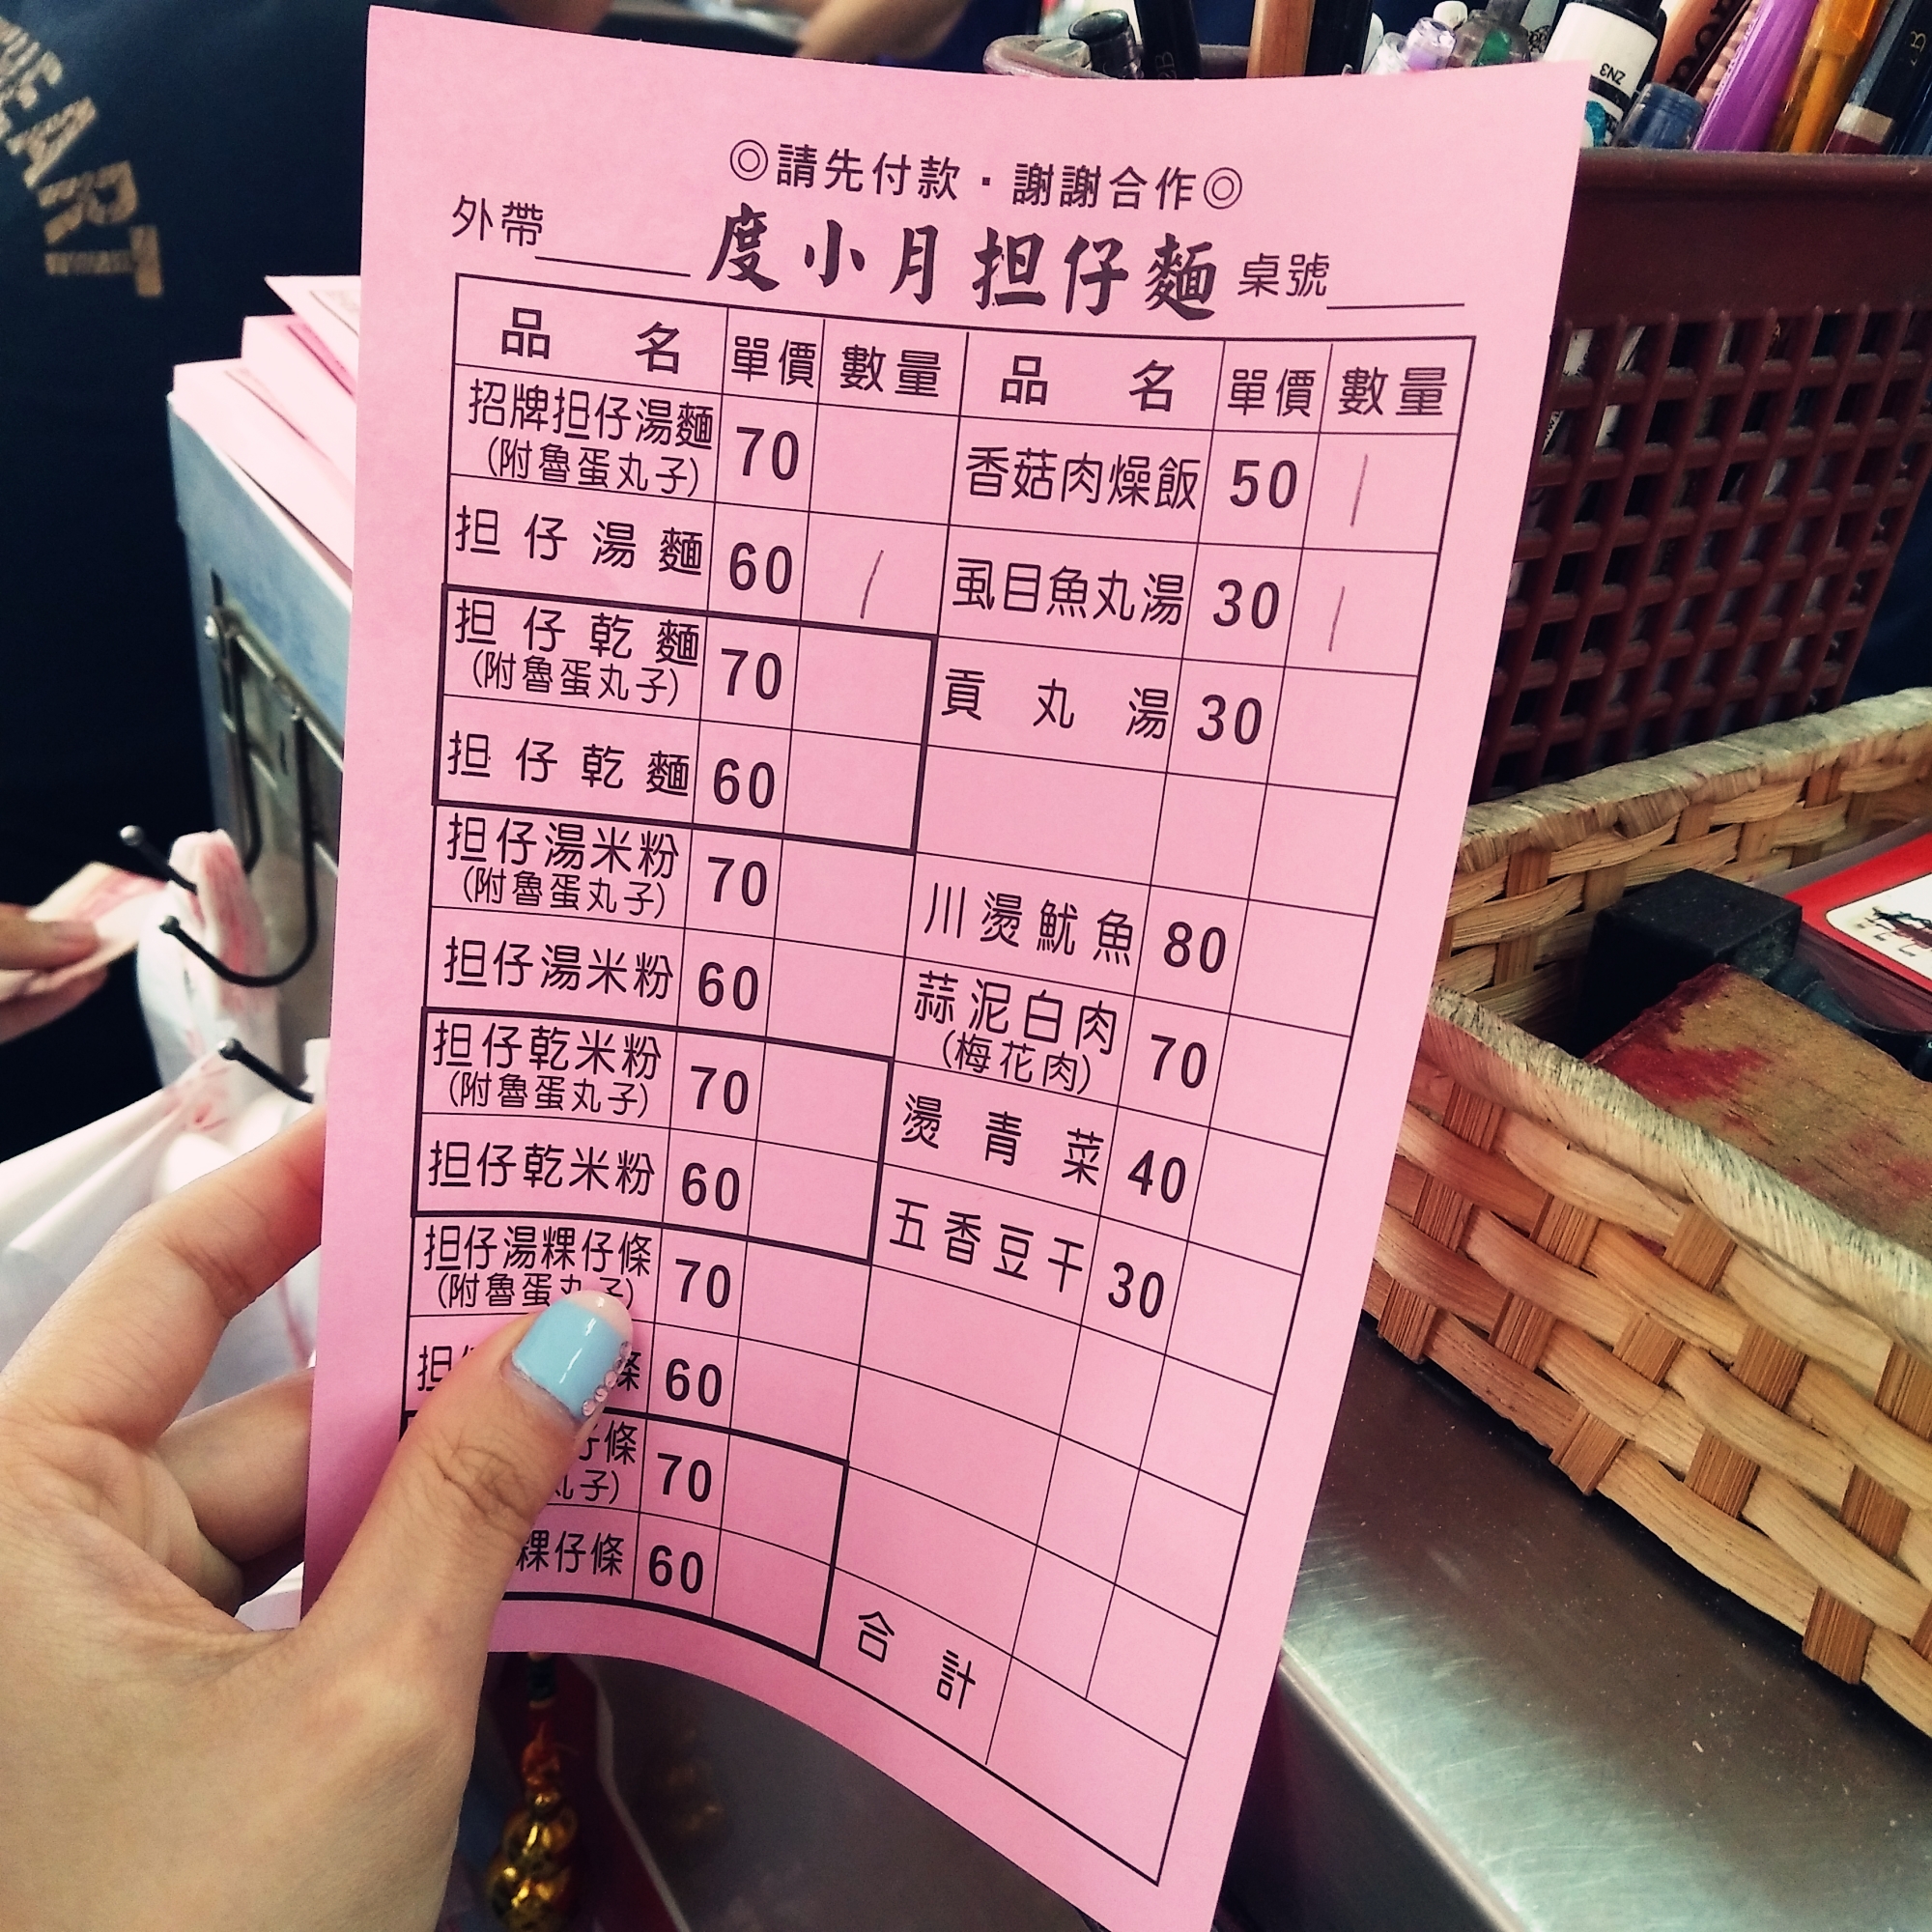 ◎請先付款·謝謝合作◎
外帶 度小月担仔麵 桌號
品名 單價 數量 品名 單價 數量
招牌担仔湯麵 70
(附魯蛋丸子)
担仔湯麵 60 /
担仔乾麵 70
(附魯蛋丸子)
担仔乾麵 60
担仔湯米粉 70
(附魯蛋丸子)
担仔湯米粉 60
担仔乾米粉 70
(附魯蛋丸子)
担仔乾米粉 60
担仔湯粿仔條 70
(附魯蛋丸子)
担 條 60
仔條 70
丸子)
粿仔條 60
香菇肉燥飯 50 |
虱目魚丸湯 30 |
貢丸湯 30
川燙魷魚 80
蒜泥白肉 70
(梅花肉)
燙青菜 40
五香豆干 30
合計
HEART
ZN3